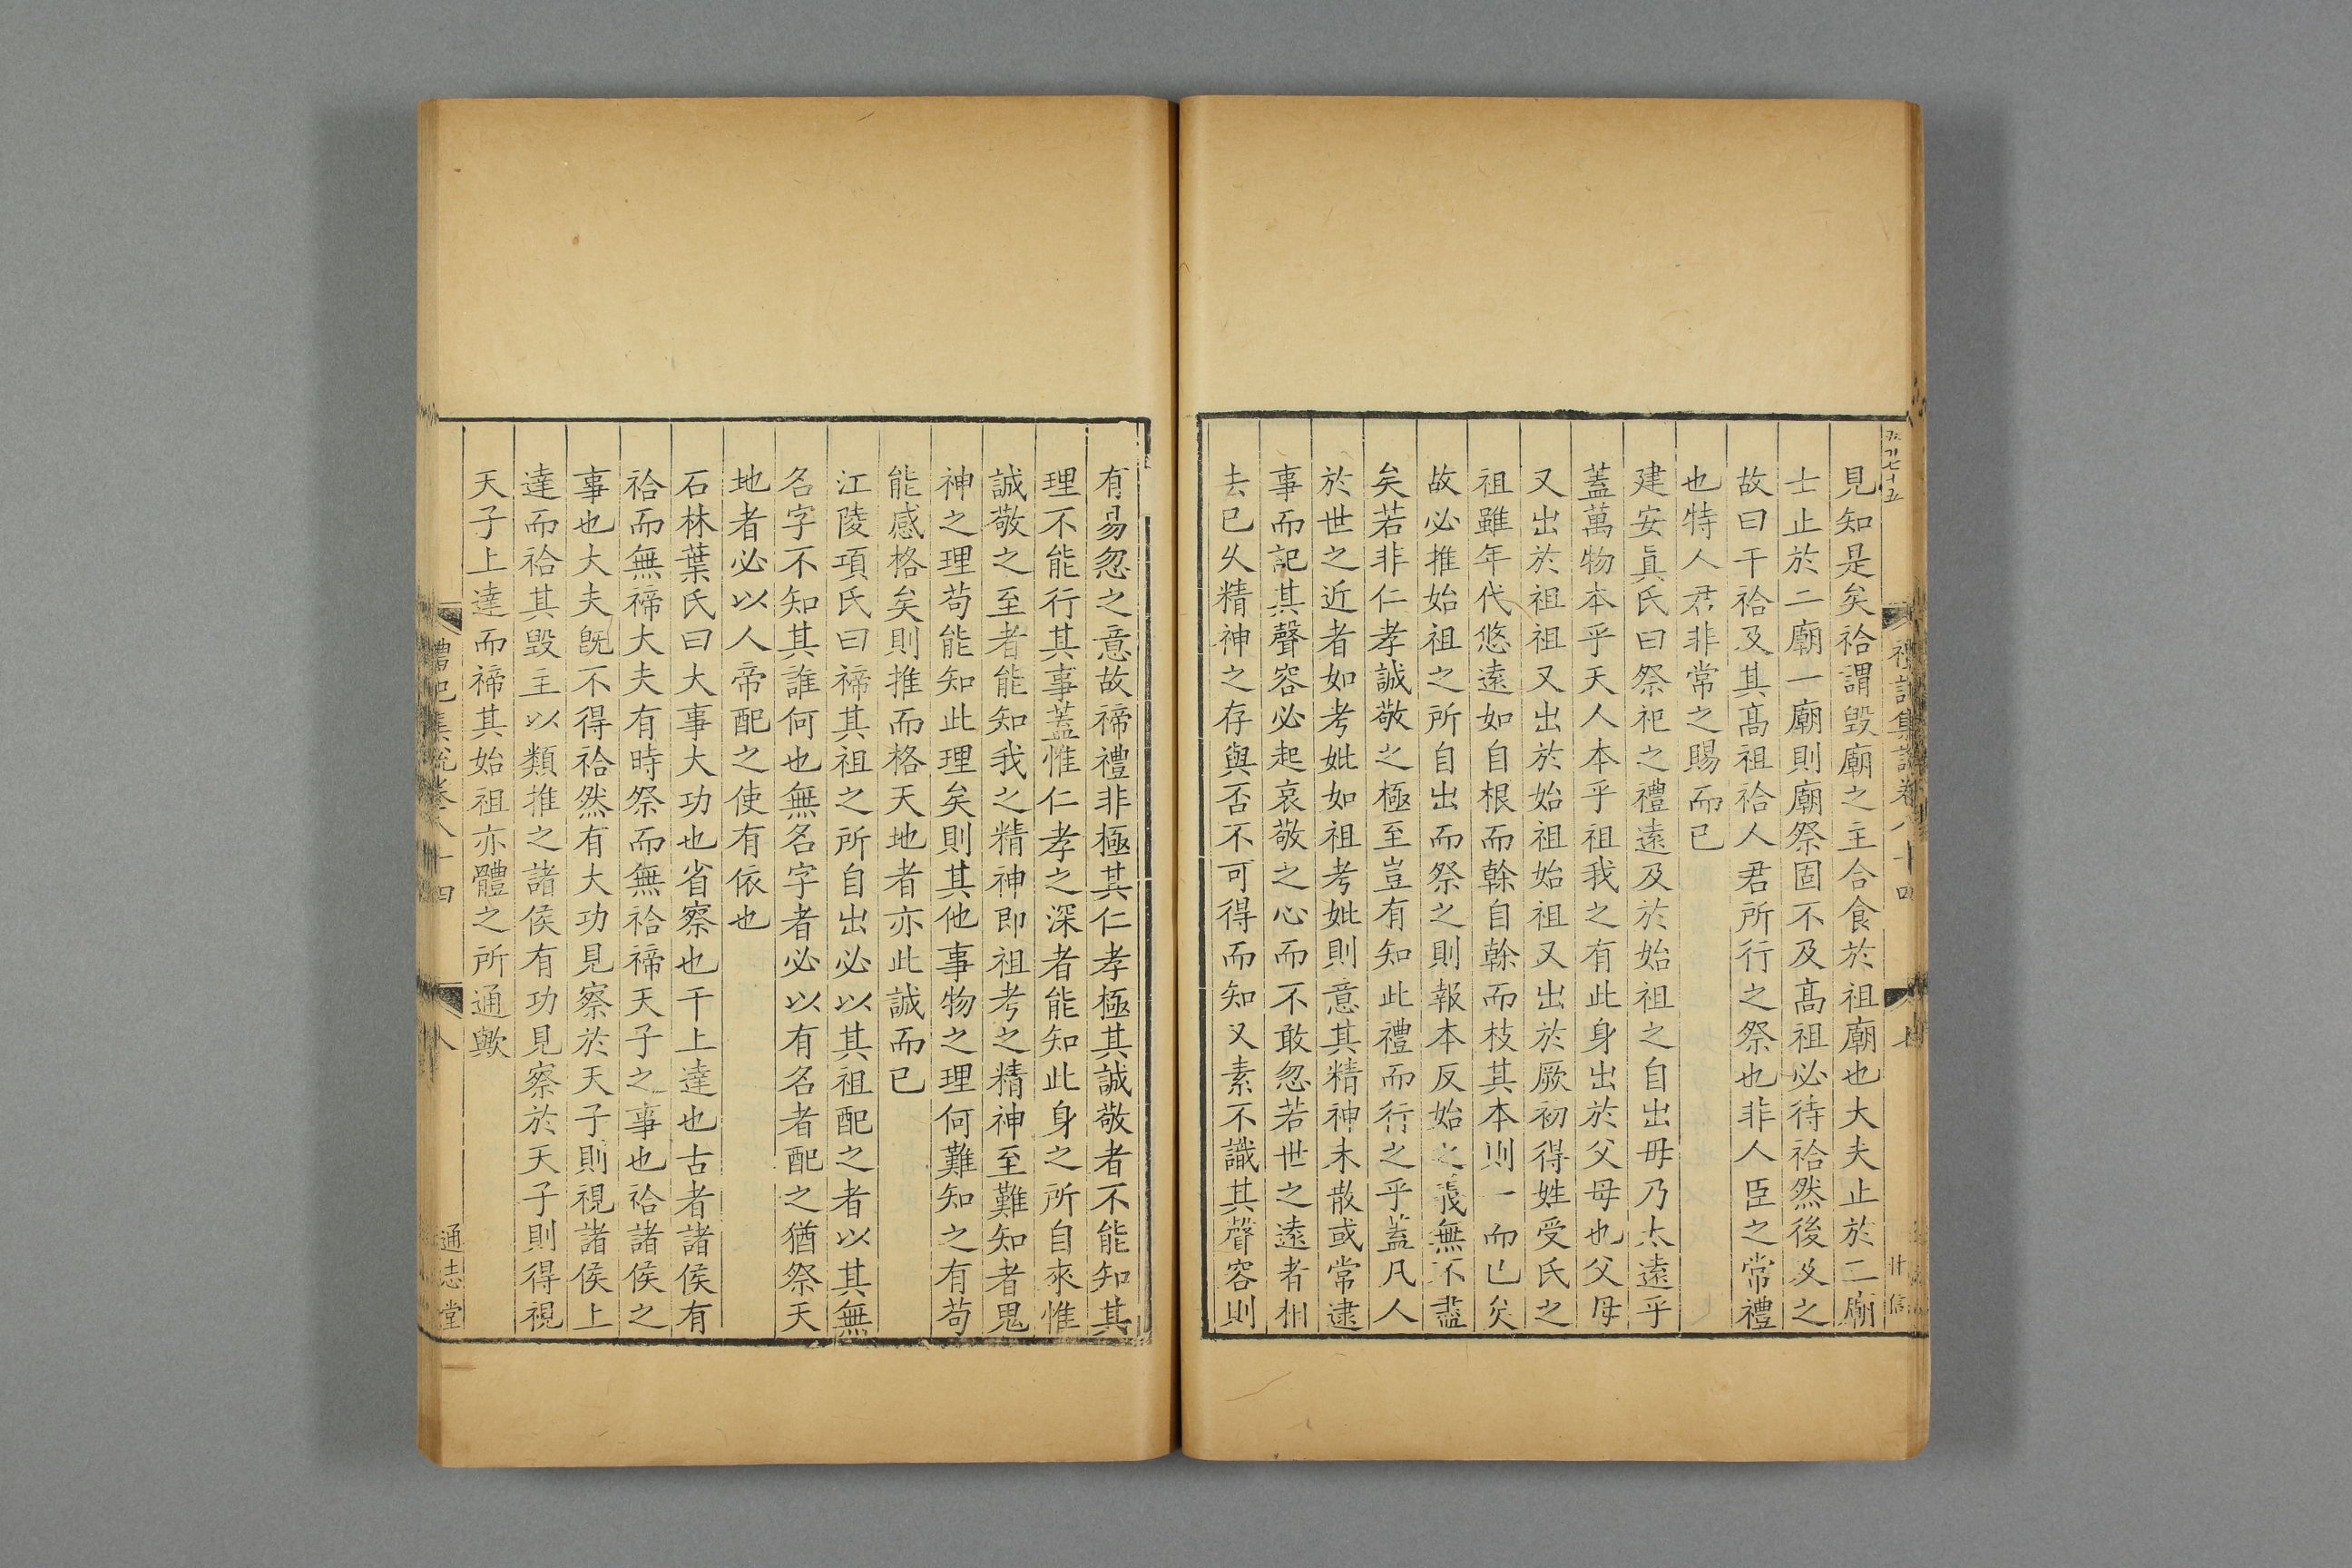 禮記集說卷八十四
見知是矣祫謂毀廟之主合食於祖廟也大夫止於二廟
士止於二廟一廟則廟祭固不及高祖必待祫然後及之
故曰干祫及其高祖祫人君所行之祭也非人臣之常禮
也特人君非常之賜而已
建安眞氏曰祭祀之禮遠及於始祖之自出毋乃太遠乎
蓋萬物本乎天人本乎祖我之有此身出於父母也父母
又出於祖祖又出於始祖始祖又出於厥初得姓受氏之
祖雖年代悠遠如自根而榦自榦而枝其本則一而已矣
故必推始祖之所自出而祭之則報本反始之義無不盡
矣若非仁孝誠敬之極至豈有知此禮而行之乎蓋凡人
於世之近者如考妣如祖考妣則意其精神未散或常逮
事而記其聲容必起哀敬之心而不敢忽若世之遠者相
去已久精神之存與否不可得而知又素不識其聲容則
有易忽之意故禘禮非極其仁孝極其誠敬者不能知其
理不能行其事蓋惟仁孝之深者能知此身之所自來惟
誠敬之至者能知我之精神即祖考之精神至難知者鬼
神之理苟能知此理矣則其他事物之理何難知之有苟
能感格矣則推而格天地者亦此誠而已
江陵項氏曰禘其祖之所自出必以其祖配之者以其無
名字不知其誰何也無名字者必以有名者配之猶祭天
地者必以人帝配之使有依也
石林葉氏曰大事大功也省察也干上達也古者諸侯有
祫而無禘大夫有時祭而無祫禘天子之事也祫諸侯之
事也大夫旣不得祫然有大功見察於天子則視諸侯上
達而祫其毀主以類推之諸侯有功見察於天子則得視
天子上達而禘其始祖亦體之所通歟
禮記集說卷八十四
八
通志堂